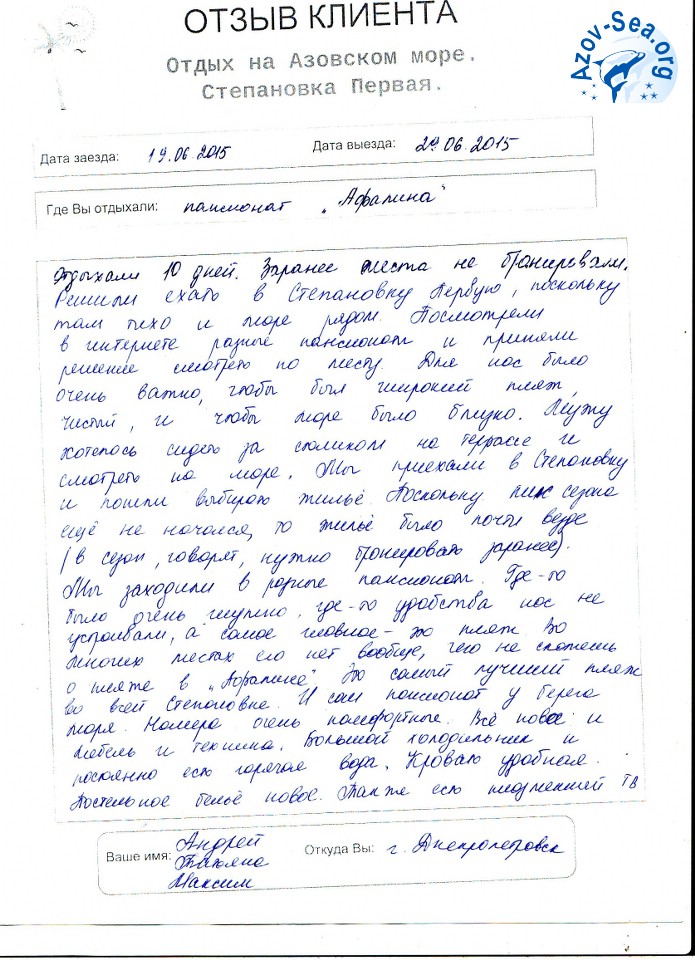 ОТЗЫВ КЛИЕНТА
Azov-Sea.org
Отдых на Азовском море.
Степановка Первая.
Дата заезда: 19.06.2015 Дата выезда: 29.06.2015
Где Вы отдыхали: пансионат „Афалина“
Отдыхали 10 дней. Заранее места не бронировали.
Решили ехать в Степановку Первую, поскольку
там тихо и море рядом. Посмотрели
в интернете разные пансионаты и приняли
решение смотреть по месту. Для нас было
очень важно, чтобы был широкий пляж,
чистый, и чтобы море было близко. Мужу
хотелось сидеть за столиком на террасе и
смотреть на море. Мы приехали в Степановку
и пошли выбирать жильё. Поскольку пик сезона
ещё не начался, то жильё было почти везде
(в сезон, говорят, нужно бронировать заранее).
Мы заходили в разные пансионаты. Где-то
было очень шумно, где-то удобства нас не
устраивали, а самое главное - это пляж. Во
многих местах его нет вообще, чего не скажешь
о пляже в „Афалине“. Это самый лучший пляж
во всей Степановке. И сам пансионат у берега
моря. Номера очень комфортные. Всё новое и
мебель и техника. Большой холодильник и
постоянно есть горячая вода. Кровать удобная.
Постельное бельё новое. Также есть плазменный ТВ
Ваше имя: Андрей
Татьяна
Максим
Откуда Вы: г. Днепропетровск